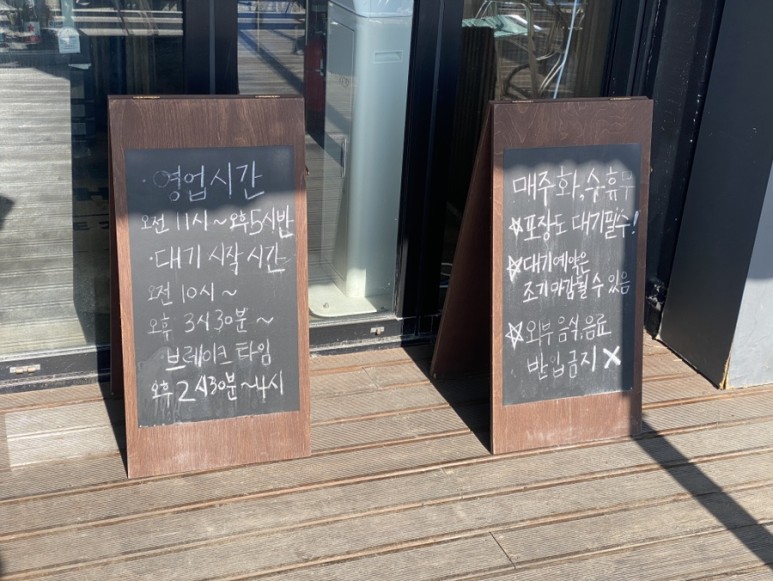 · 영업시간
오전 11시~오후5시반
· 대기 시작 시간
오전 10시~
오후 3시30분~
· 브레이크 타임
오후 2시30분~4시
매주 화,수, 휴무
☆포장도 대기필수!
☆대기예약은
조기마감될 수 있음
☆외부 음식,음료
반입금지 X